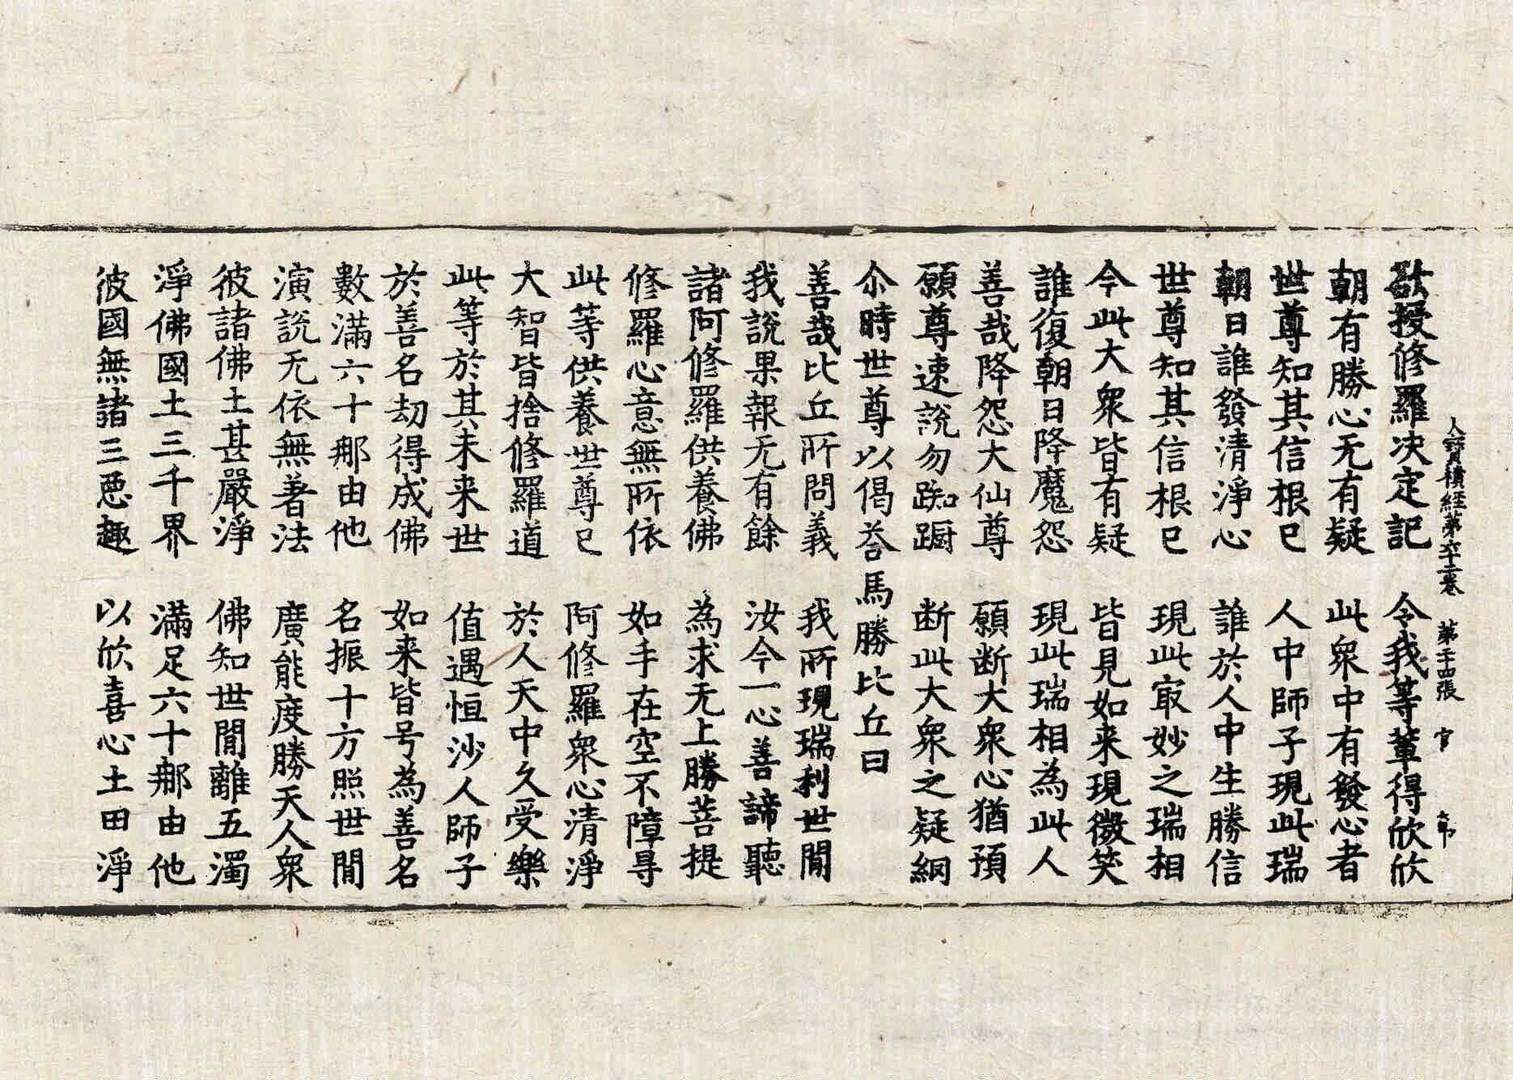 寶積經第六十二卷 第二十四張 官
欲授修羅決定記 令我等輩得欣欣
朝有勝心无有疑 此衆中有發心者
世尊知其信根已 人中師子現此瑞
朝日誰發清淨心 誰於人中生勝信
世尊知其信根已 現此㝡妙之瑞相
今此大衆皆有疑 皆見如来現微笑
誰復朝日降魔怨 現此瑞相為此人
善哉降怨大仙尊 願断大衆心猶預
願尊速說勿踟蹰 断此大衆之疑網
尒時世尊以偈荅馬勝比丘曰
善哉比丘所問義 我所現瑞利世閒
我說果報无有餘 汝今一心善諦聽
諸阿修羅供養佛 為求无上勝菩提
修羅心意無所依 如手在空不障㝵
此等供養世尊已 阿修羅衆心清淨
大智皆捨修羅道 於人天中久受樂
此等於其未来世 值遇恒沙人師子
於善名劫得成佛 如来皆号為善名
數滿六十那由他 名振十方照世閒
演說无依無著法 廣能度勝天人衆
彼諸佛土甚嚴淨 佛知世閒離五濁
淨佛國土三千界 滿足六十那由他
彼國無諸三惡趣 以欣喜心土田淨